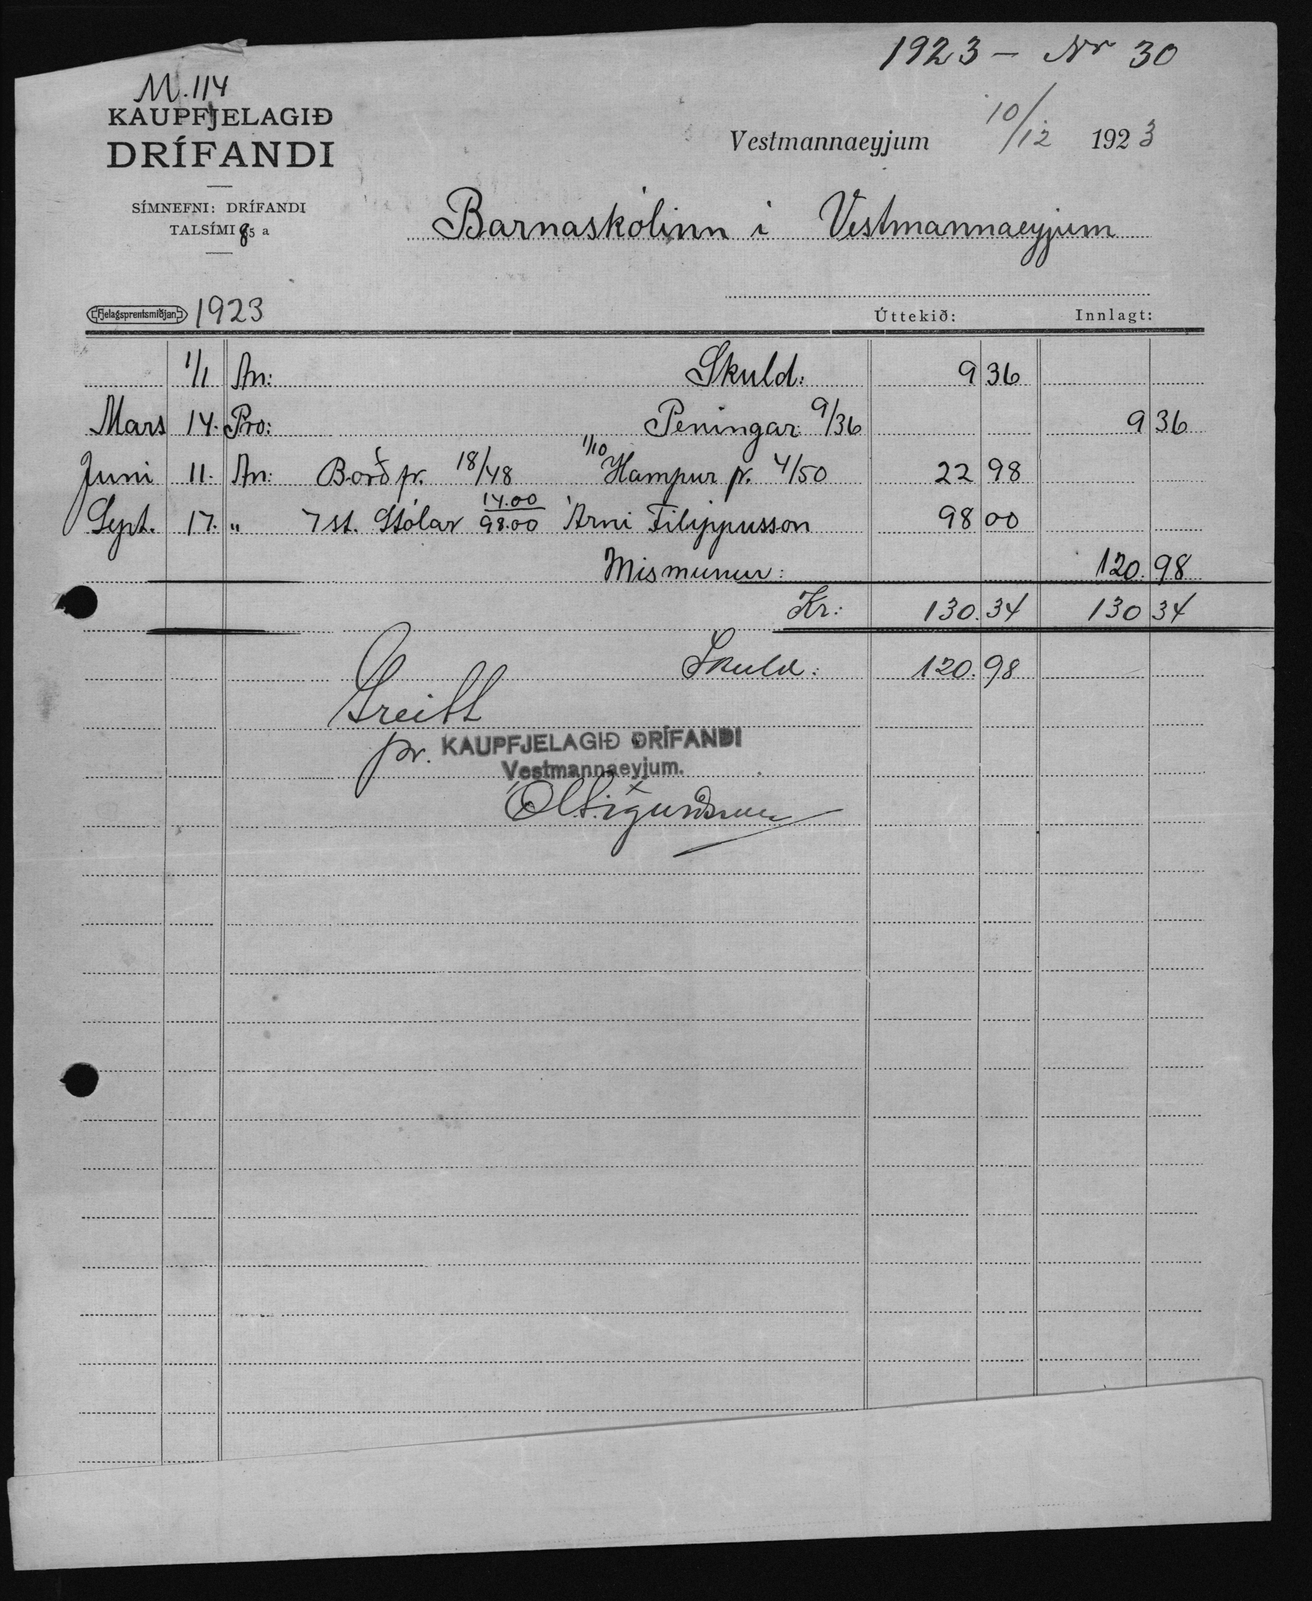 1923 – Nr 30
M. 114
KAUPFJELAGIÐ
DRÍFANDI
SÍMNEFNI: DRÍFANDI
TALSÍMI 85 a
Vestmannaeyjum 10/12 1923
Barnaskólinn í Vestmannaeyjum
Fjelagsprentsmiðjan 1923 Úttekið: Innlagt:
1/1 An: Skuld: 9 36
Mars 14. Pro: Peningar 9/36 9 36
Juni 11. An: Borð pr. 18/48 1/10 Hampur pr. 4/50 22 98
Sept. 17. " 7 st. Stólar 14.00 98.00 Árni Filippusson 98 00
Mismunur: 120.98
Kr: 130.34 130 34
Skuld: 120.98
Greitt
pr. KAUPFJELAGIÐ DRÍFANDI
Vestmannaeyjum.
Sigurðsson